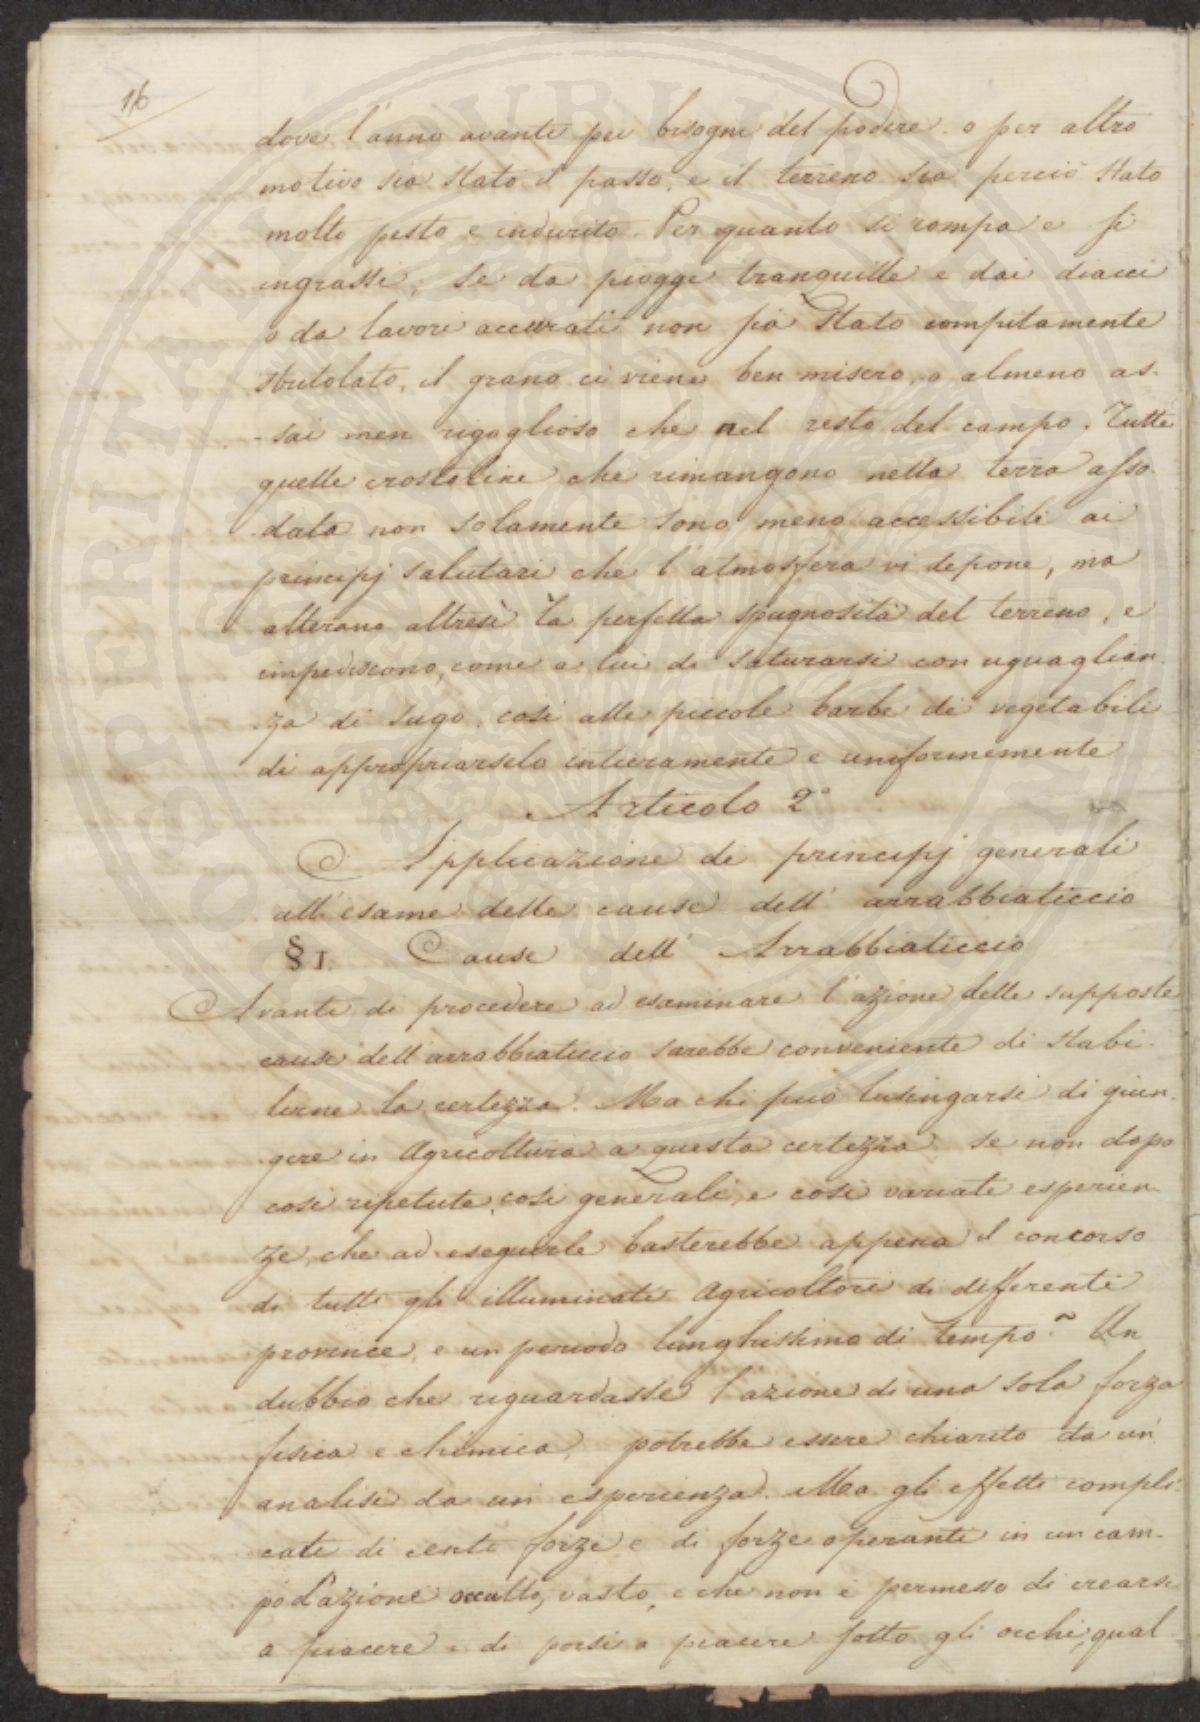 16
dove l'anno avanti pei bisogni del podere o per altro
motivo sia stato il passo, e il terreno sia perciò stato
molto pesto e indurito. Per quanto si rompa e si
ingrassi; se da piogge tranquille e dai diacci
o da lavori accurati non sia stato compitamente
stritolato, il grano ci viene ben misero, o almeno as-
-sai men rigoglioso che nel resto del campo. Tutte
quelle crostoline che rimangono nella terra asso
data non solamente sono meno accessibili ai
principj salutari che l'atmosfera vi depone, ma
alterano altresì la perfetta spugnosità del terreno, e
impediscono, come a lui di saturarsi con uguaglian
za di sugo, così alle piccole barbe dei vegetabili
di appropriarselo intieramente e uniformemente
Articolo 2°
Applicazione dei principj generali
all'esame delle cause dell'arrabbiaticcio
§ I. Cause dell'Arrabbiaticcio
Avanti di procedere ad esaminare l'azione delle supposte
cause dell'arrabbiaticcio sarebbe conveniente di stabi-
lirne la certezza. Ma chi può lusingarsi di giun-
gere in Agricoltura a questa certezza se non dopo
così ripetute, così generali, e così variate esperien-
ze, che ad eseguirle basterebbe appena il concorso
di tutti gli illuminati Agricoltori di differenti
province, e un periodo lunghissimo di tempo? Un
dubbio che riguardasse l'azione di una sola forza
fisica e chimica, potrebbe essere chiarito da un'
analisi da un'esperienza. Ma gli effetti compli
cati di cento forze e di forze operanti in un cam-
po d'azione occulto, vasto, e che non è permesso di crearsi
a piacere e di porsi a piacere sotto gli occhi, qual